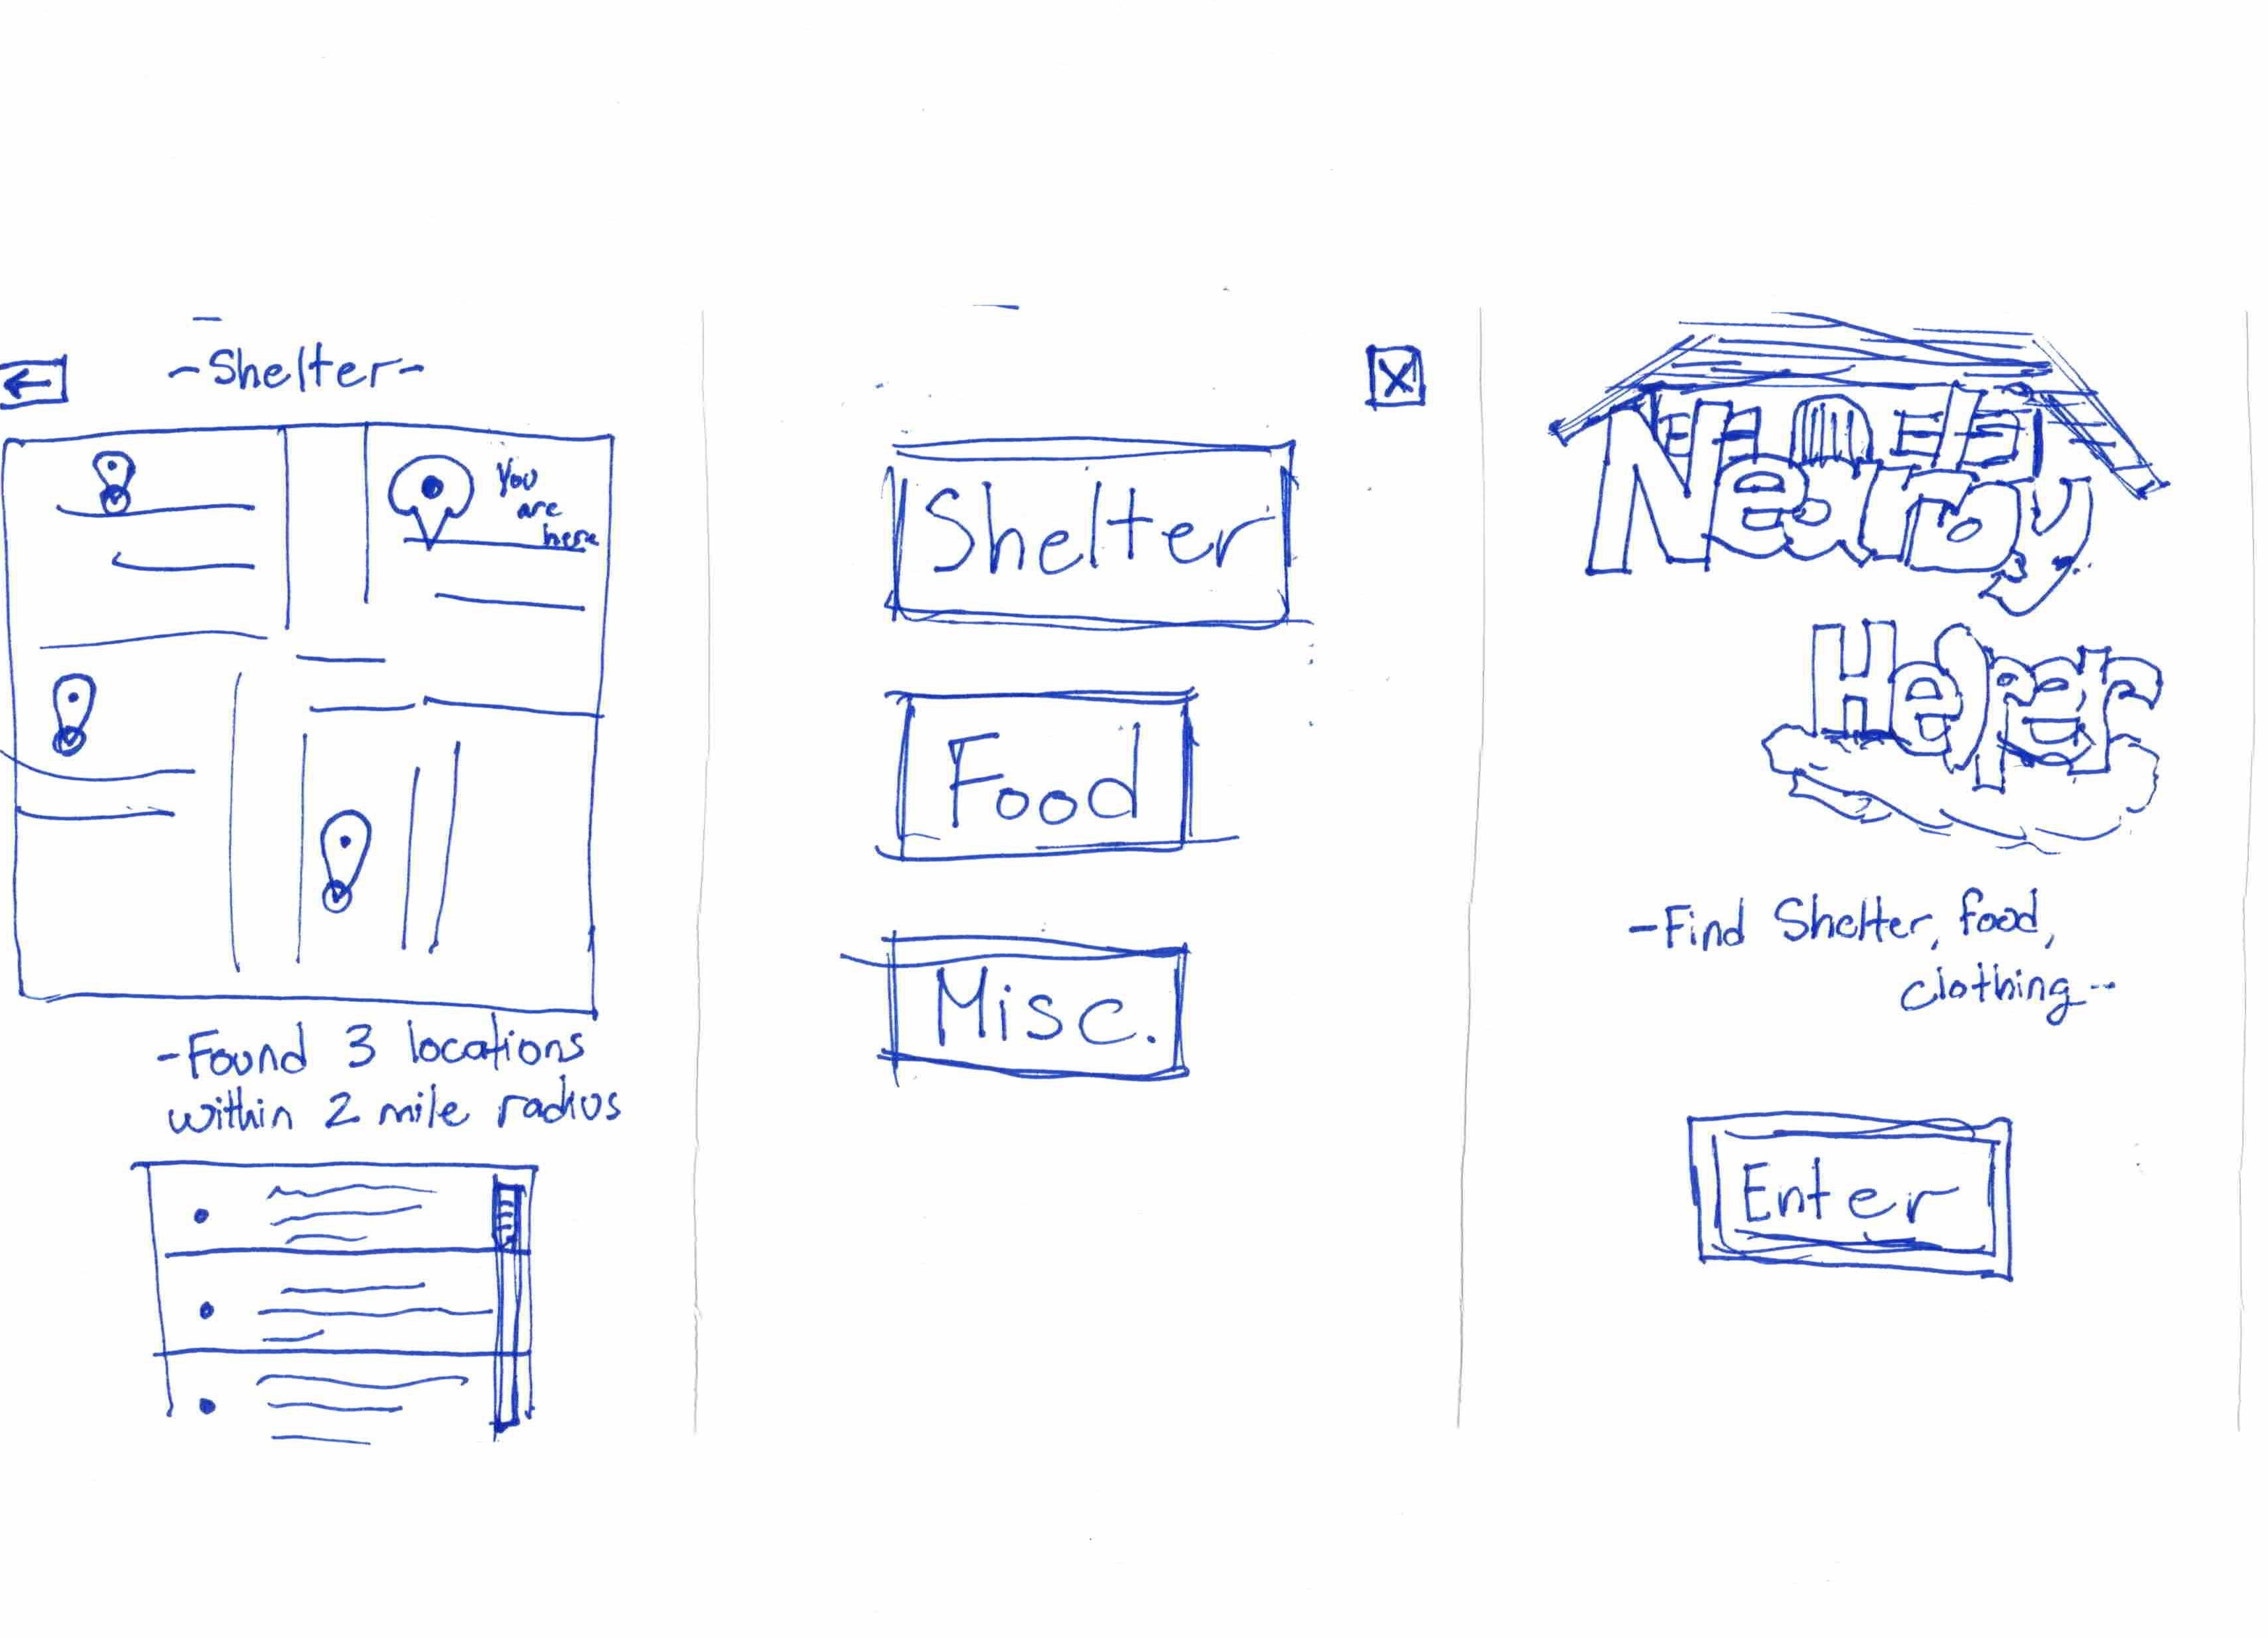 -Shelter-
You
are
here
-Found 3 locations
within 2 mile radius
Shelter
Food
Misc.
X
Nearby
Helper
-Find Shelter, food,
clothing--
Enter